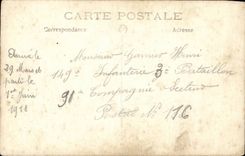 CARTE POSTALE
Correspondance Adresse
Arrivé le
29 Mars et
partie le
1er Juin
1911
Monsieur Garnier Henri
149e Infanterie 3e Bataillon
91 Compagnie Secteur
Postal No 116